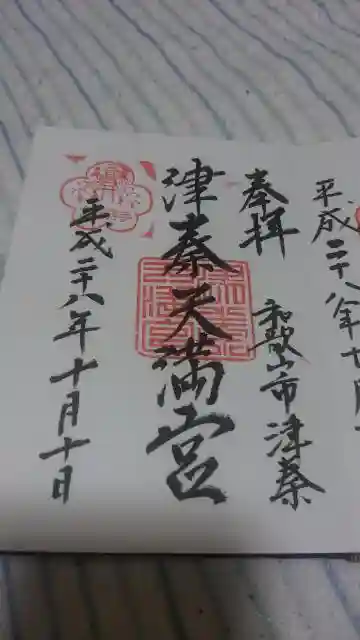 平成二十八年十月
奉拝
和歌山市津秦
津秦天満宮
平成二十八年十月十日